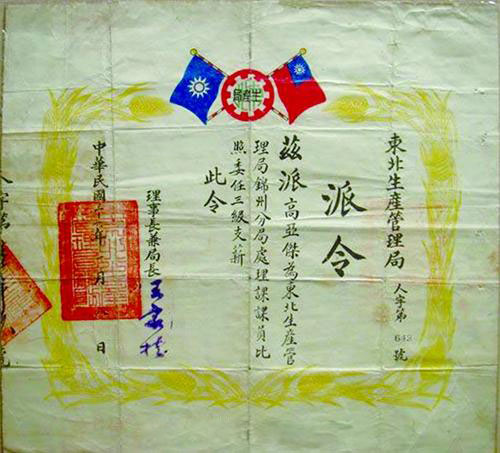 生產局
東北生產管理局
人字第643號
派令
茲派高亞傑為東北生產管
理局錦州分局處理課課員比
照委任三級支薪
此令
理事長兼局長 王家楨
中華民國年月日
人字第號